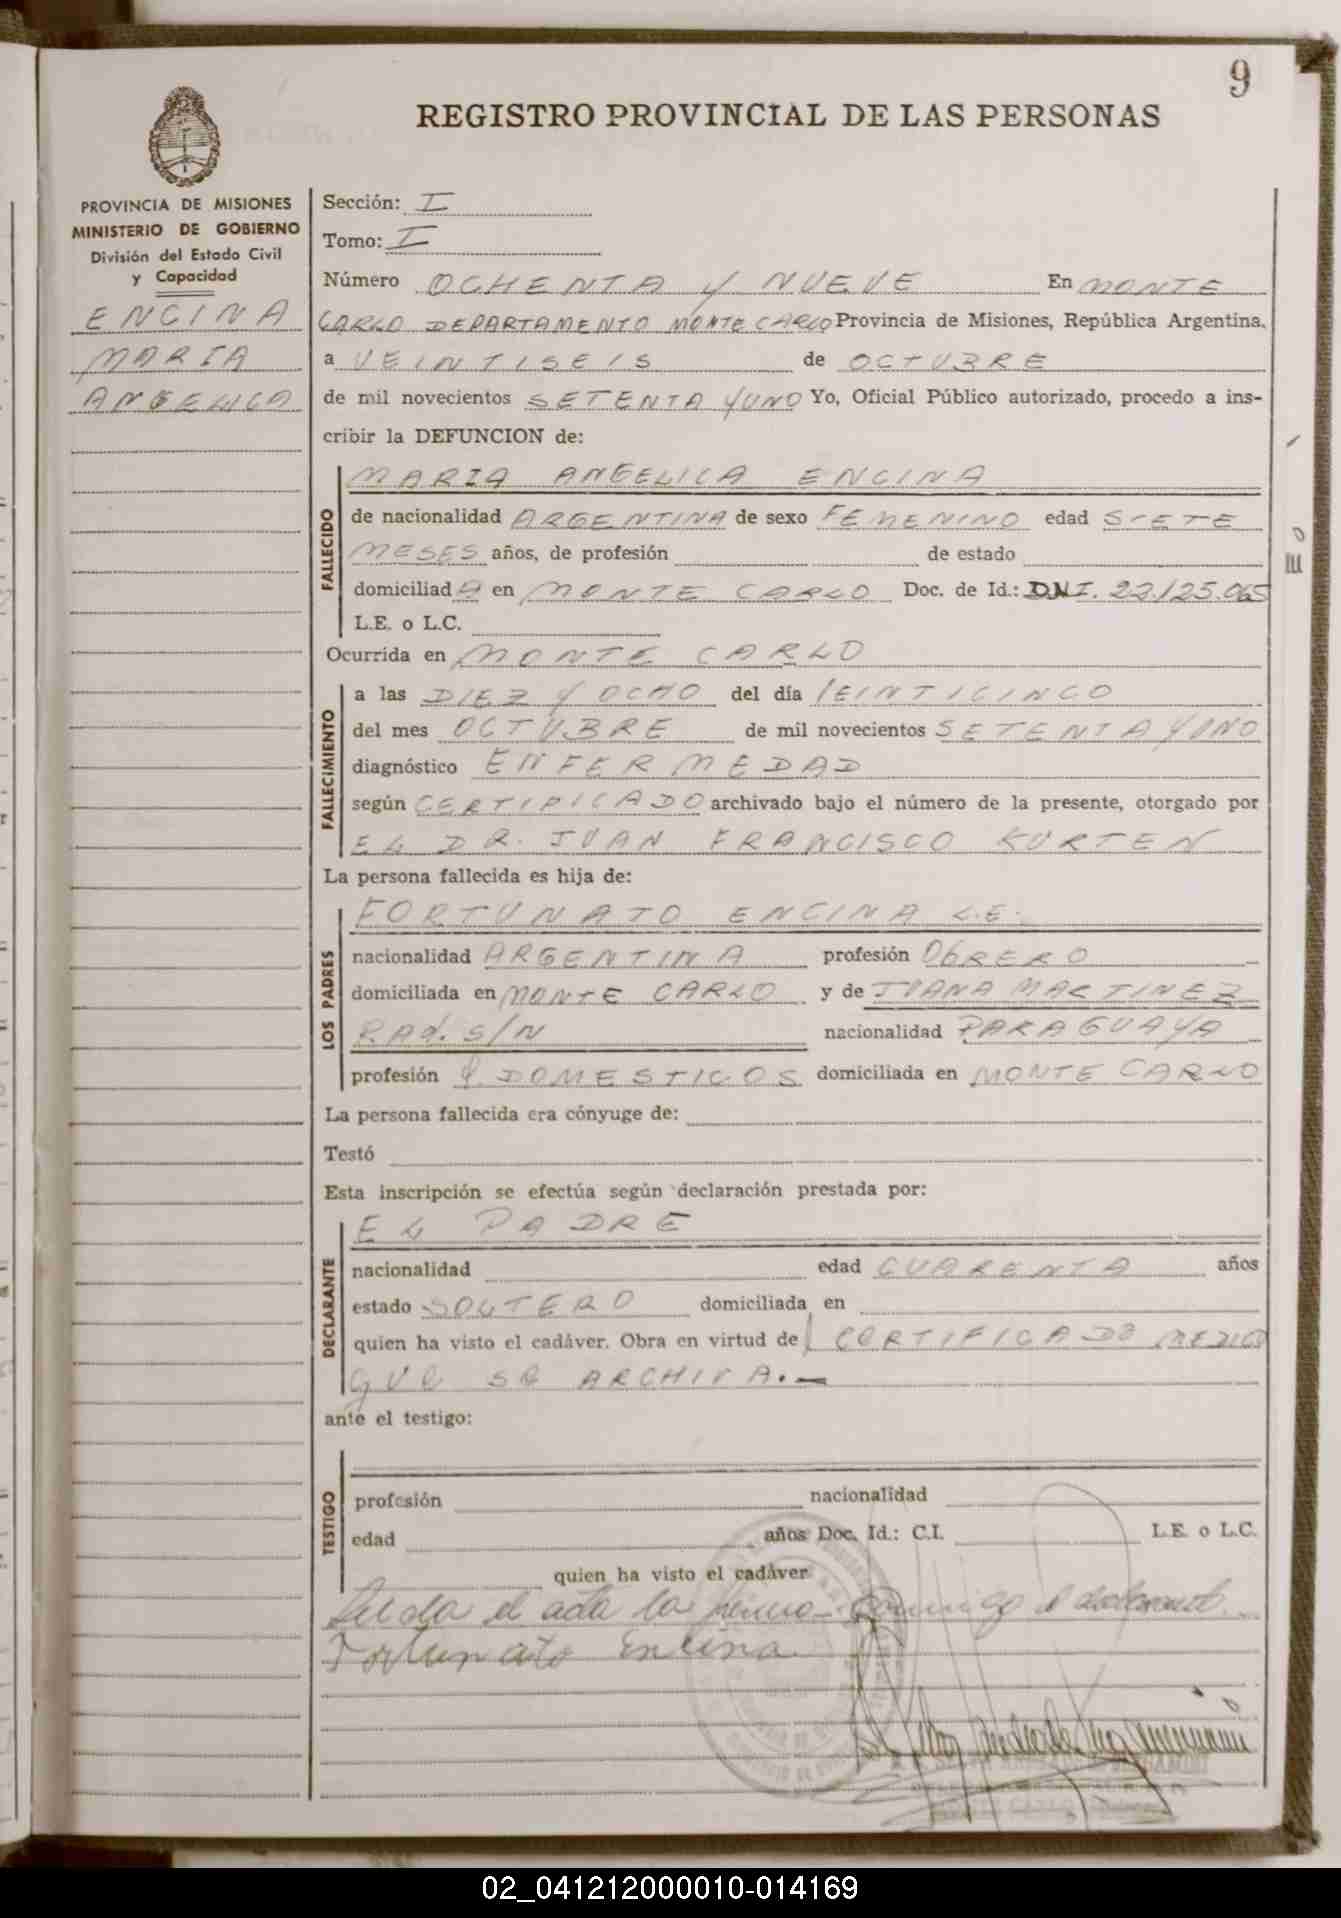 9
REGISTRO PROVINCIAL DE LAS PERSONAS
PROVINCIA DE MISIONES
MINISTERIO DE GOBIERNO
División del Estado Civil
y Capacidad
ENCINA
MARIA
ANGELICA
Sección: I
Tomo: I
Número OCHENTA Y NUEVE En MONTE
CARLO DEPARTAMENTO MONTE CARLO Provincia de Misiones, República Argentina,
a VEINTISEIS de OCTUBRE
de mil novecientos SETENTA Y UNO Yo, Oficial Público autorizado, procedo a ins-
cribir la DEFUNCION de:
FALLECIDO
MARIA ANGELICA ENCINA
de nacionalidad ARGENTINA de sexo FEMENINO edad SIETE
MESES años, de profesión de estado
domiciliad A en MONTE CARLO Doc. de Id.: DNI. 22.125.065
L.E. o L.C.
Ocurrida en MONTE CARLO
FALLECIMIENTO
a las DIEZ Y OCHO del día VEINTICINCO
del mes OCTUBRE de mil novecientos SETENTA Y UNO
diagnóstico ENFERMEDAD
según CERTIFICADO archivado bajo el número de la presente, otorgado por
EL DR. JUAN FRANCISCO KURTEN
La persona fallecida es hija de:
LOS PADRES
FORTUNATO ENCINA L.E.
nacionalidad ARGENTINA profesión ObRERO
domiciliada en MONTE CARLO y de JUANA MARTINEZ
RAd. S/N nacionalidad PARAGUAYA
profesión Q. DOMESTICOS domiciliada en MONTE CARLO
La persona fallecida era cónyuge de:
Testó
Esta inscripción se efectúa según declaración prestada por:
DECLARANTE
EL PADRE
nacionalidad edad CUARENTA años
estado SOLTERO domiciliada en
quien ha visto el cadáver. Obra en virtud de CERTIFICADO MEDICO
QUE SE ARCHIVA.-
ante el testigo:
TESTIGO
profesión nacionalidad
edad años Doc. Id.: C.I. L.E. o L.C.
quien ha visto el cadáver
Leida el acta la firma conmigo el declarante
Fortunato Encina
02_041212000010-014169